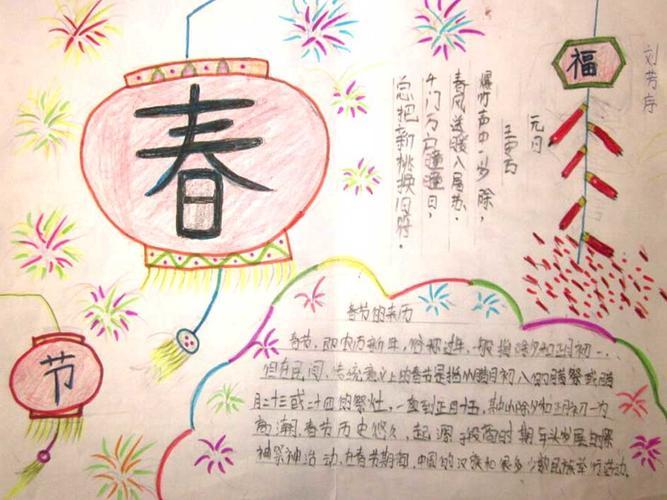 春
节
福
刘芳序
元日
王安石
爆竹声中一岁除,
春风送暖入屠苏.
千门万户瞳瞳日,
总把新桃换旧符.
春节的来历
春节,即农历新年,俗称过年,一般指除夕和正月初一...
但在民间,传统意义上的春节是指从腊月初八的腊祭或腊
月二十三或二十四的祭灶,一直到正月十五,其中以除夕和正月初一为
高潮.春节历史悠久,起源于殷商时期年头岁尾的祭
神祭神活动.在春节期间,中国的汉族和很多少数民族举行活动.